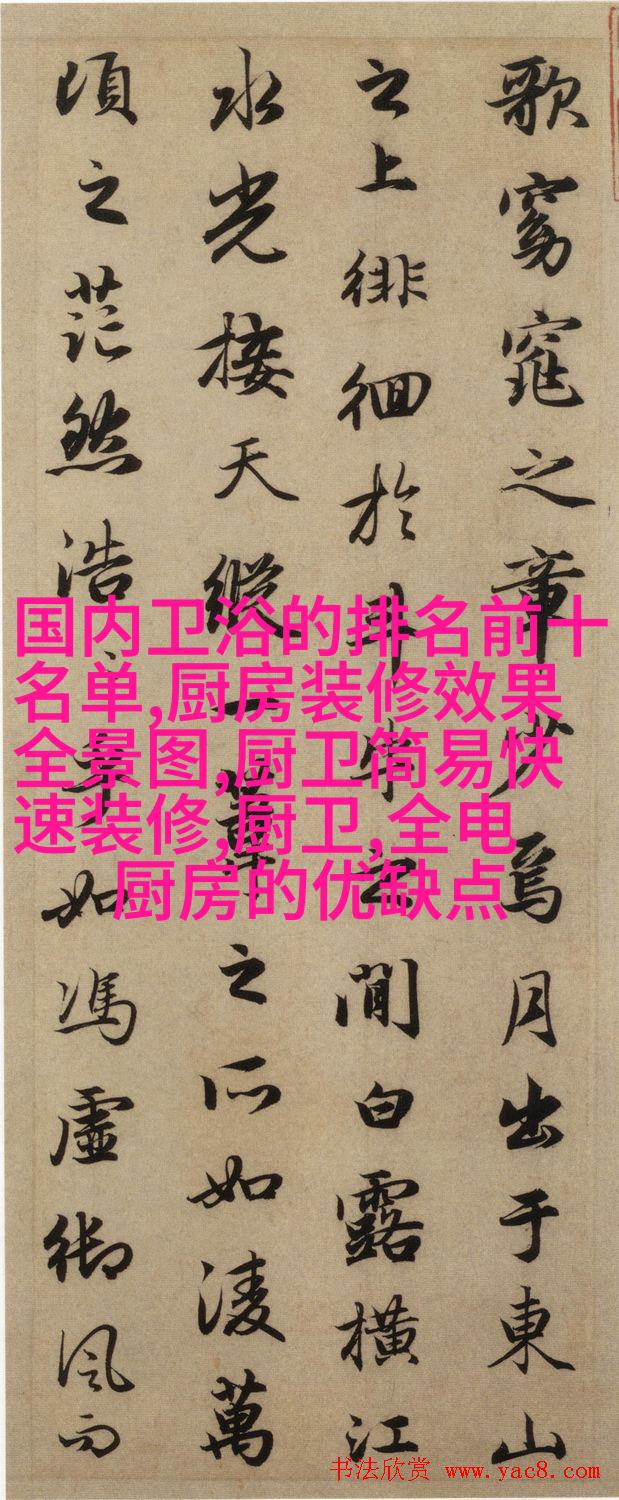 歌窈窕之章少焉月出于東山
之上徘徊於斗牛之間白露橫江
水光接天縱一葦之所如淩萬
頃之茫然浩〻乎如馮虛御風而
国内卫浴的排名前十
名单,厨房装修效果
全景图,厨卫简易快
速装修,厨卫,全电
厨房的优缺点
书法欣赏 www.yac8.com